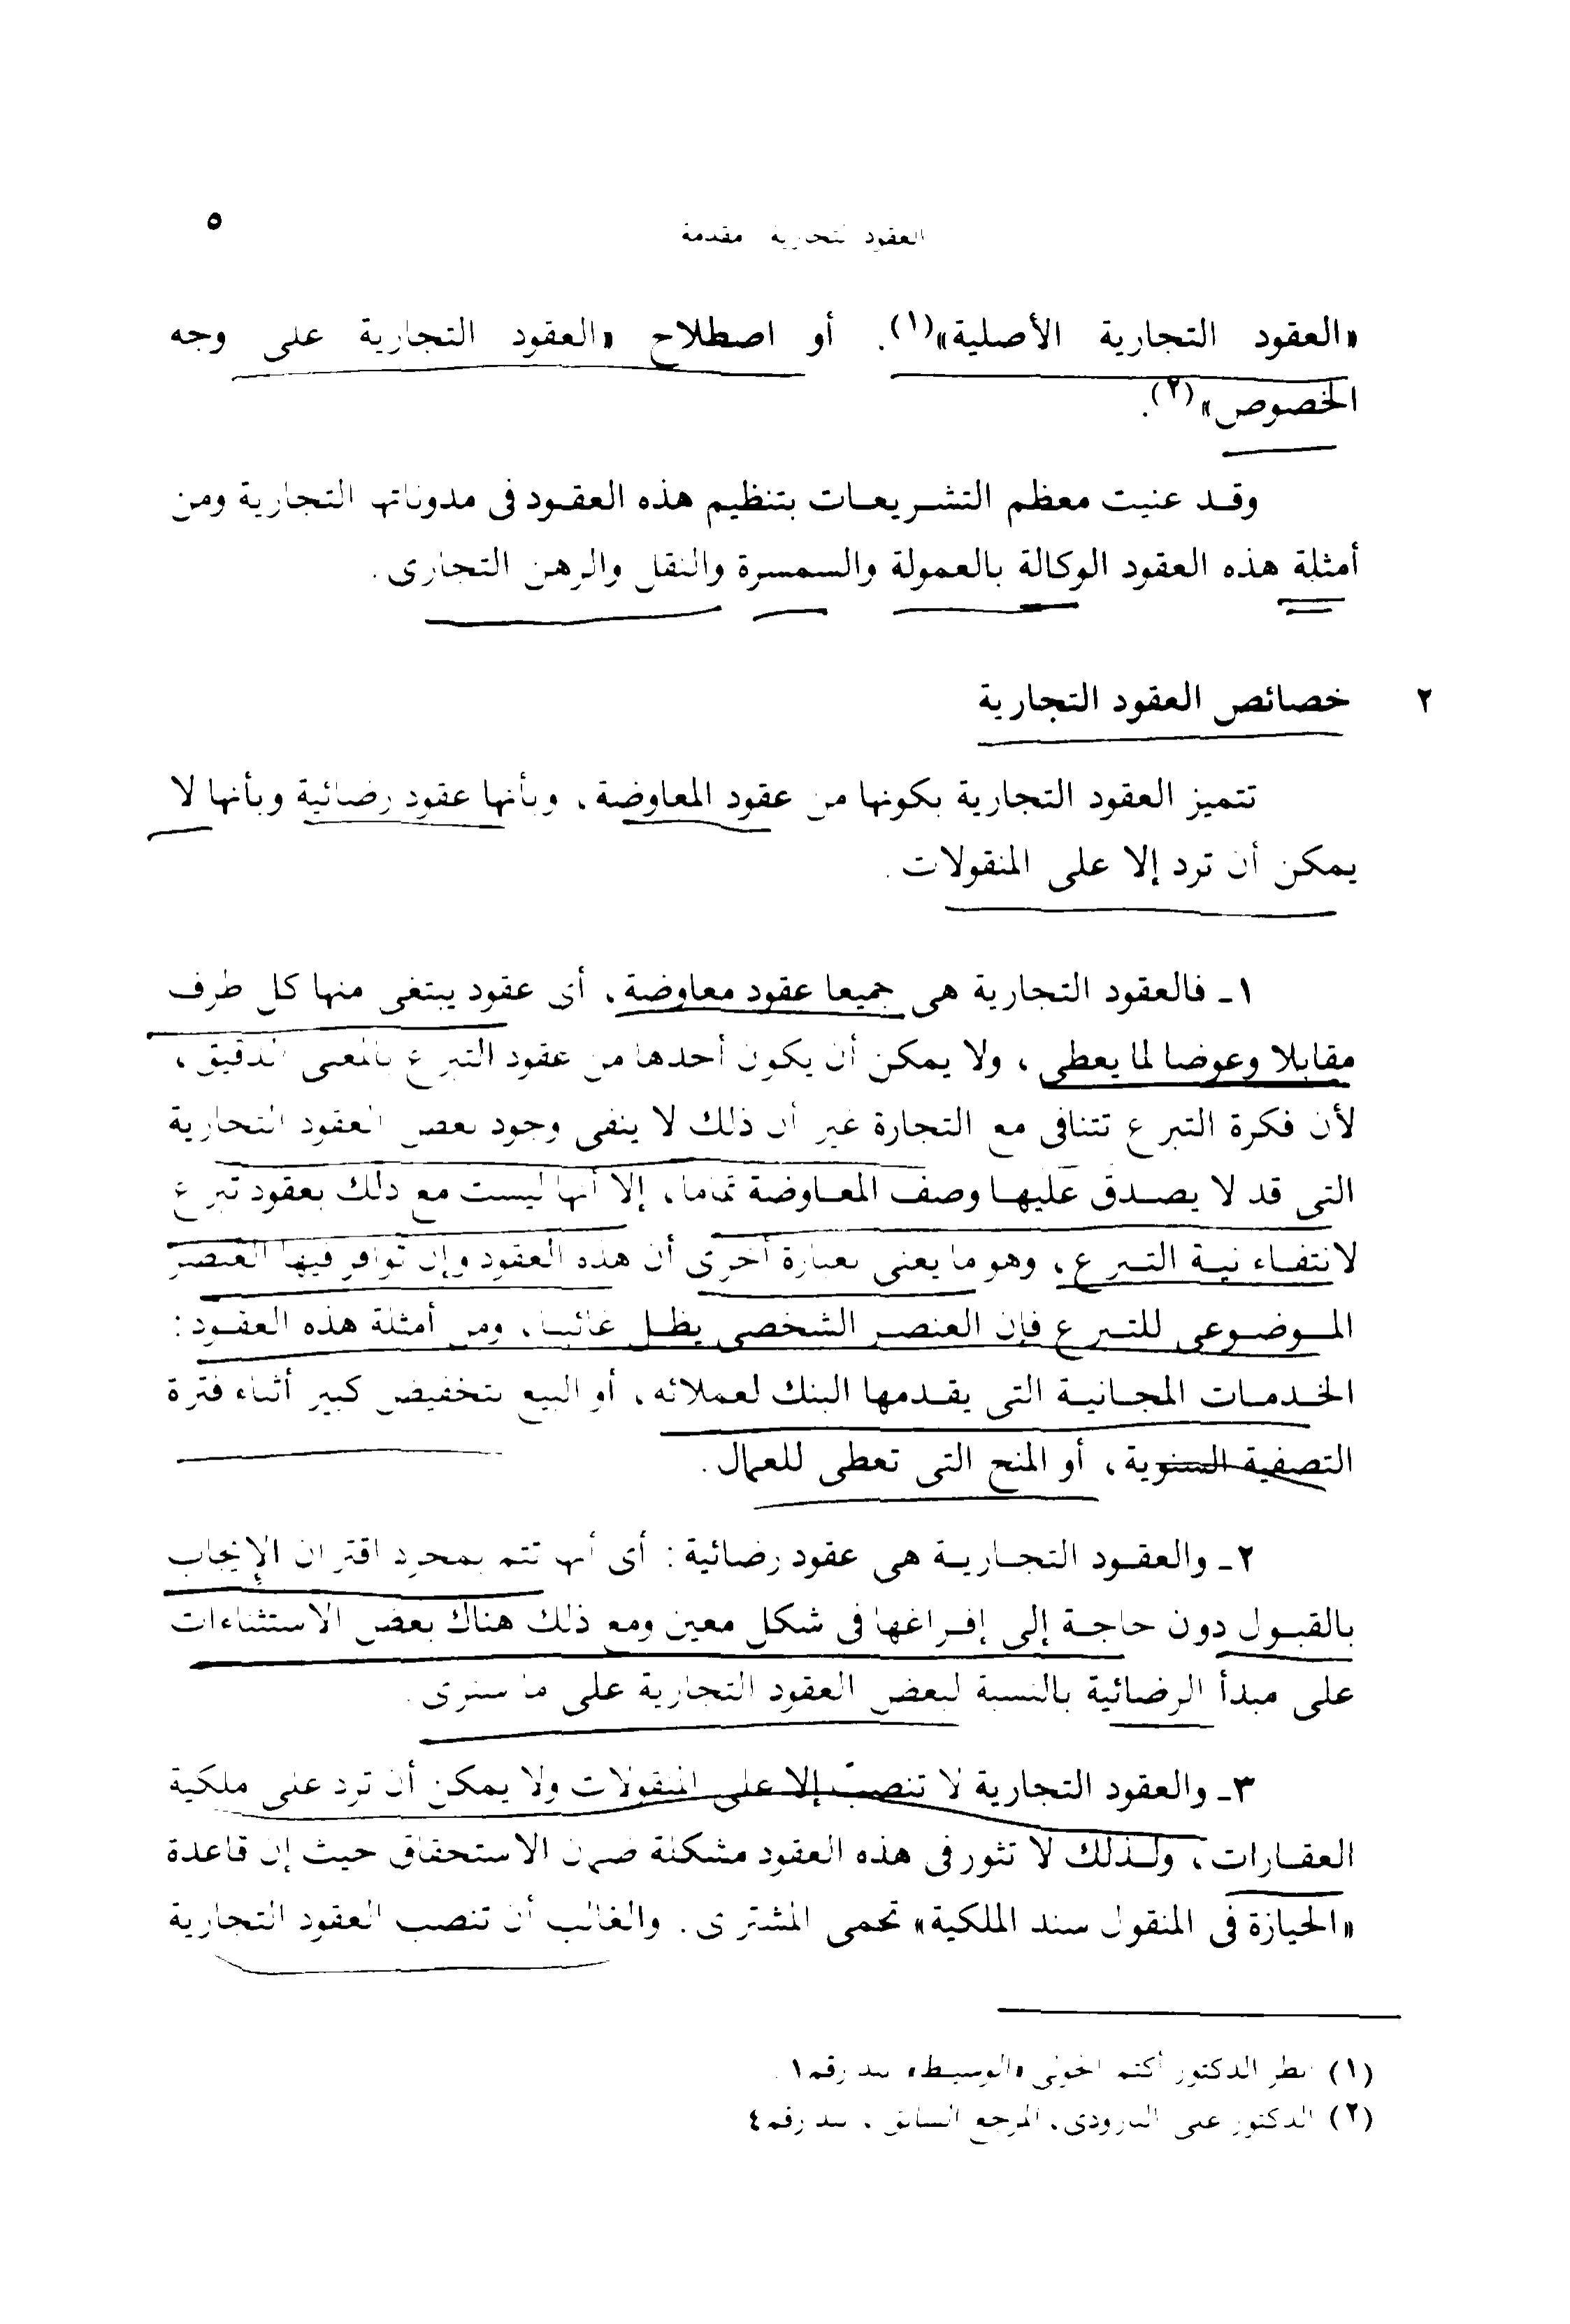 العقود التجارية مقدمة
٥
«العقود التجارية الأصلية»(١). أو اصطلاح «العقود التجارية على وجه
الخصوص»(٢).
وقد عنيت معظم التشريعات بتنظيم هذه العقود فى مدوناتها التجارية ومن
أمثلة هذه العقود الوكالة بالعمولة والسمسرة والنقل والرهن التجارى.
٢ خصائص العقود التجارية
تتميز العقود التجارية بكونها من عقود المعاوضة، وبأنها عقود رضائية وبأنها لا
يمكن أن ترد إلا على المنقولات.
١ـ فالعقود التجارية هى جميعا عقود معاوضة، أى عقود يبتغى منها كل طرف
مقابلا وعوضا لما يعطى، ولا يمكن أن يكون أحدها من عقود التبرع بالمعنى الدقيق،
لأن فكرة التبرع تتنافى مع التجارة غير أن ذلك لا ينفى وجود بعض العقود التجارية
التى قد لا يصدق عليها وصف المعاوضة تماما، إلا أنها ليست مع ذلك بعقود تبرع
لانتفاء نية التبرع، وهو ما يعنى بعبارة أخرى أن هذه العقود وإن توافر فيها العنصر
الموضوعى للتبرع فإن العنصر الشخصى يظل غائبا، ومن أمثلة هذه العقود:
الخدمات المجانية التى يقدمها البنك لعملائه، أو البيع بتخفيض كبير أثناء فترة
التصفية السنوية، أو المنح التى تعطى للعمال.
٢ـ والعقود التجارية هى عقود رضائية: أى أنها تتم بمجرد اقتران الإيجاب
بالقبول دون حاجة إلى إفراغها فى شكل معين ومع ذلك هناك بعض الاستثناءات
على مبدأ الرضائية بالنسبة لبعض العقود التجارية على ما سنرى.
٣ـ والعقود التجارية لا تنصبّ إلا على المنقولات ولا يمكن أن ترد على ملكية
العقارات، ولذلك لا تثور فى هذه العقود مشكلة ضمان الاستحقاق حيث إن قاعدة
«الحيازة فى المنقول سند الملكية» تحمى المشترى. والغالب أن تنصب العقود التجارية
(١) انظر الدكتور أكثم الخولى «الوسيط» بند رقم ١
(٢) الدكتور على البارودى، المرجع السابق، بند رقم ٤